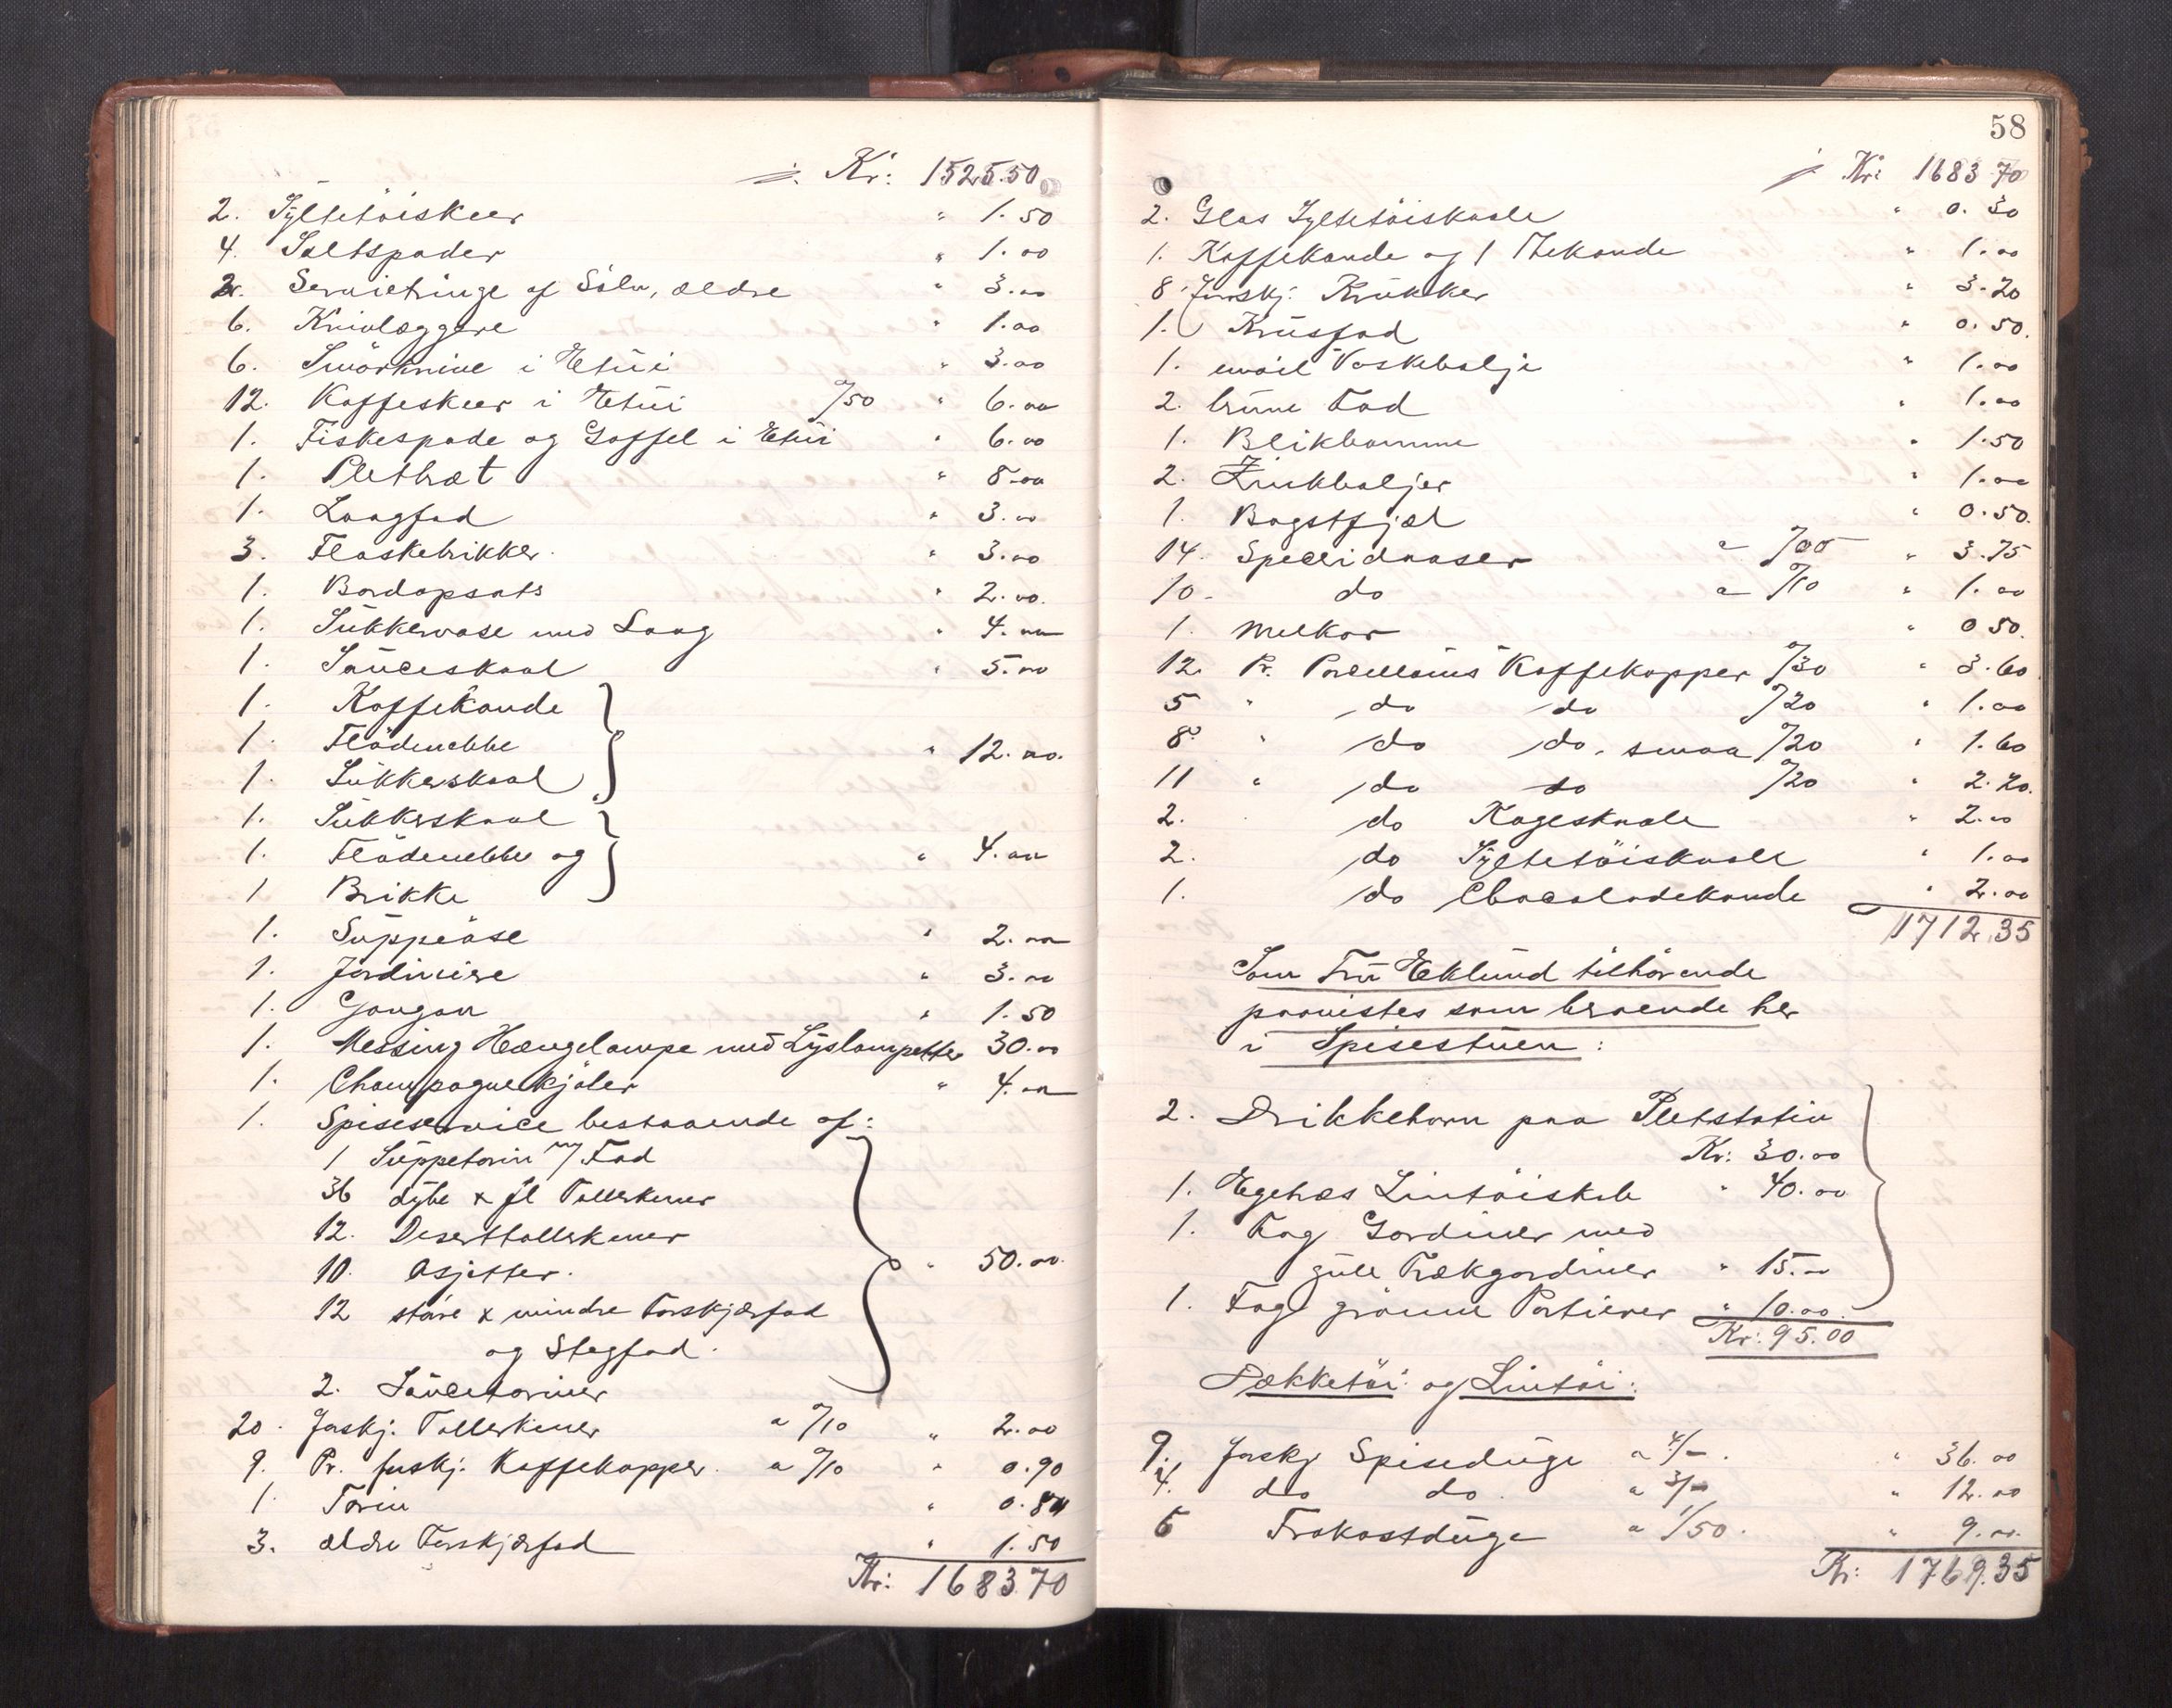 Kr: 1525.50
2. Syltetöiskeer " 1.50
4. Saltspader " 1.00
2. Servietringe af Sölv, ældre " 3.00
6. Knivlæggere " 1.00
6. Smörknive i Etüi " 3.00
12. Kaffeskeer i Etüi °/50 " 6.00
1. Fiskespade og Gaffel i Etüi " 6.00
1. Pletbræt " 8.00
1. Laagfad " 3.00
3. Flaskebrikker. " 3.00
1. Bordopsats " 2.00.
1. Sükkervase med Laag " 4.00
1. Saüceskaal " 5.00
1. Kaffekande
1. Flödemübbe " 12.00.
1. Sükkerskaal
1. Sükkerskaal
1. Flödemübbe og " 4.00
1 Brikke
1. Süppeöse " 2.00
1. Jardiniere " 3.00
1. Gongon " 1.50
1. Messing Hængelampe med Lyslampetter 30.00
1. Champagnekjöler " 4.00
1. Spiseservice bestaaende af:
1 Süppeterin m/ Fad
36 dybe & fl Tallerkener
12. Deserttallerkener
10. Asjetter. " 50.00.
12 störe & mindre Forskjærfad
og Stegfad.
2. Saüceteriner
20. forskj. Tallerkener a °/10 " 2.00
9. Pr. forskj. Kaffekopper. a °/10 " 0.90
1. Terin " 0.80
3. ældre Forskjærfad " 1.50
Kr: 1683.70
58
Kr: 1683.70
2. Glas Syltetöiskaale " 0.30
1. Kaffekande og 1 Thekande " 1.00
8 forskj: Krükker " 3.20
1. Krüsfad " 0.50.
1. email Vaskebalje " 1.00
2. brüne Fad " 1.00
1. Blikbomme " 1.50
2. Zinkbaljer " 1.00
1. Bagstfjæl " 0.50.
14. Specridaaser " 3.75
10. do a °/10 " 1.00
1. Melkar " 0.50.
12. Pr. Porcellains Kaffekopper °/30 " 3.60
5 " do do °/20 " 1.00
8 " do do. smaa °/20 " 1.60
11 " do do °/20 " 2.20.
2. do Kageskaale " 2.00
2. do Syltetöiskaale " 1.00
1. do Chocoladekande " 2.00
1712.35
Som Frü Eklund tilhörende
paavistes som beroende her
i Spisestüen:
2. Drikkehorn paa Pletstativ
Kr: 30.00
1. Egetræs Lintöiskab " 40.00
1. Fag Gardiner med
güle Trækgardiner " 15.00
1. Fag grönne Portierer " 10.00.
Kr: 95.00
Dækketöi og Lintöi:
9. forskj Spisedüge a 4/-. " 36.00
4. do do. a 3/- " 12.00
6 Frokostdüge a 1/50. " 9.00.
Kr: 1769.35